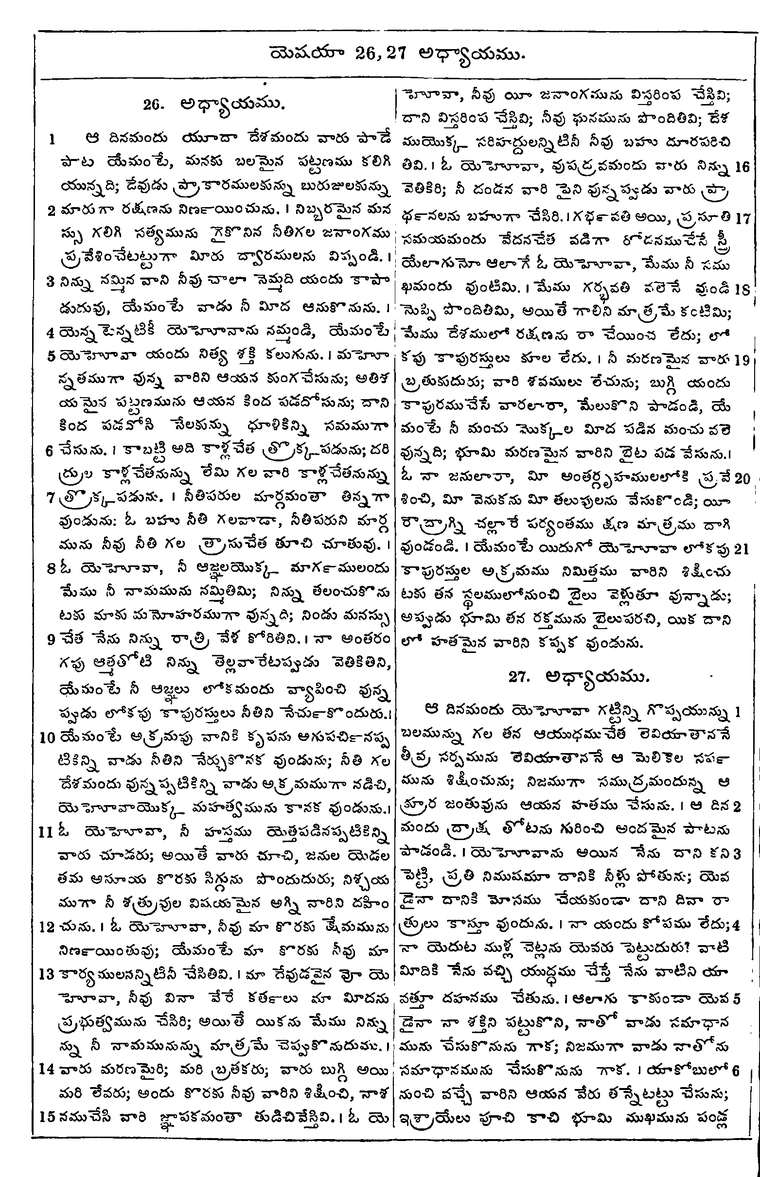 యెషయా 26, 27 అధ్యాయము.
26. అధ్యాయము.
1 ఆ దినమందు యూదా దేశమందు వారు పాడే
పాట యేమంటే, మనకు బలమైన పట్టణము కలిగి
యున్నది; దేవుడు ప్రాకారములకున్ను బురుజులకున్ను
2 మారుగా రక్షణను నిర్ణయించును. । నిబ్బరమైన మన
స్సు గలిగి సత్యమును గైకొనిన నీతిగల జనాంగము
ప్రవేశించేటట్టుగా మీరు ద్వారములను విప్పండి. ।
3 నిన్ను నమ్మిన వాని నీవు చాలా నెమ్మది యందు కాపా
డుదువు, యేమంటే వాడు నీ మీద ఆనుకొనును. ।
4 యెన్న టెన్నటికీ యెహోవాను నమ్మండి, యేమంటే
5 యెహోవా యందు నిత్య శక్తి కలుగును. । మహో
న్నతముగా వున్న వారిని ఆయన కుంగచేసును; అతిశ
యమైన పట్టణమును ఆయన కింద పడదోసును; దాని
కింద పడవోసి నేలకున్ను ధూళికిన్ని సమముగా
6 చేసును. । కాబట్టి అది కాళ్లచేత త్రొక్క పడును; దరి
ద్రుల కాళ్లచేతనున్ను లేమి గల వారి కాళ్లచేతనున్ను
7 త్రొక్కపడును. । నీతిపరుల మార్గమంతా తిన్నగా
వుండును: ఓ బహు నీతి గలవాడా, నీతిపరుని మార్గ
మును నీవు నీతి గల త్రాసుచేత తూచి చూతువు. ।
8 ఓ యెహోవా, నీ ఆజ్ఞలయొక్క మార్గములందు
మేము నీ నామమును నమ్మితిమి; నిన్ను తలంచుకొను
టకు మాకు మనోహరముగా వున్నది; నిండు మనస్సు
9 చేత నేను నిన్ను రాత్రి వేళ కోరితిని. । నా అంతరం
గపు ఆత్మతోటి నిన్ను తెల్లవారేటప్పుడు వెతికితిని,
యేమంటే నీ ఆజ్ఞలు లోకమందు వ్యాపించి వున్న
ప్పుడు లోకపు కాపురస్తులు నీతిని నేర్చుకొందురు. ।
10 యేమంటే అక్రమపు వానికి కృపను అగుపర్చినప్ప
టికిన్ని వాడు నీతిని నేర్చుకొనక వుండును; నీతి గల
దేశమందు వున్నప్పటికిన్ని వాడు అక్రమముగా నడిచి,
యెహోవాయొక్క మహత్వమును కానక వుండును. ।
11 ఓ యెహోవా, నీ హస్తము యెత్తపడినప్పటికిన్ని
వారు చూడరు; అయితే వారు చూచి, జనుల యెడల
తమ అసూయ కొరకు సిగ్గును పొందుదురు; నిశ్చయ
ముగా నీ శత్రువుల విషయమైన అగ్ని వారిని దహిం
12 చును. । ఓ యెహోవా, నీవు మా కొరకు క్షేమమును
నిర్ణయింతువు; యేమంటే మా కొరకు నీవు మా
13 కార్యములనన్నిటినీ చేసితివి. । మా దేవుడవైన వో యె
హోవా, నీవు వినా వేరే కర్తలు మా మీదను
ప్రభుత్వమును చేసిరి; అయితే యికను మేము నిన్ను
న్ను నీ నామమునున్ను మాత్రమే చెప్పుకొనుదుము. ।
14 వారు మరణమైరి; మరి బ్రతకరు; వారు బుగ్గి అయి
మరి లేవరు; అందు కొరకు నీవు వారిని శిక్షించి, నాశ
15 నముచేసి వారి జ్ఞాపకమంతా తుడిచివేస్తివి. । ఓ యె
హోవా, నీవు యీ జనాంగమును విస్తరింప చేస్తివి;
దాని విస్తరింప చేస్తివి; నీవు ఘనమును పొందితివి; దేశ
ముయొక్క సరిహద్దులన్నిటినీ నీవు బహు దూరపరిచి
తివి. । ఓ యెహోవా, వుపద్రవమందు వారు నిన్ను 16
వెతికిరి; నీ దండన వారి పైని వున్నప్పుడు వారు ప్రా
ర్థనలను బహుగా చేసిరి. । గర్భవతి అయి, ప్రసూతి 17
సమయమందు వేదనచేత వడిగా రోదనముచేసే స్త్రీ
యేలాగునో ఆలాగే ఓ యెహోవా, మేము నీ సము
ఖమందు వుంటిమి. । మేము గర్భవతి వలెనే వుండి 18
నొప్పి పొందితిమి, అయితే గాలిని మాత్రమే కంటిమి;
మేము దేశములో రక్షణను రా చేయించ లేదు; లో
కపు కాపురస్తులు కూల లేదు. । నీ మరణమైన వారు 19
బ్రతుకుదురు; వారి శవములు లేచును; బుగ్గి యందు
కాపురముచేసే వారలారా, మేలుకొని పాడండి, యే
మంటే నీ మంచు మొక్కల మీద పడిన మంచు వలె
వున్నది; భూమి మరణమైన వారిని బైట పడ వేసును. ।
ఓ నా జనులారా, మీ అంతర్గృహములలోకి ప్రవే 20
శించి, మీ వెనుకను మీ తలుపులను వేసుకొండి; యీ
రౌద్రాగ్ని చల్లారే పర్యంతము క్షణ మాత్రము దాగి
వుండండి. । యేమంటే యిదుగో యెహోవా లోకపు 21
కాపురస్తుల అక్రమము నిమిత్తము వారిని శిక్షించు
టకు తన స్థలములోనుంచి బైలు వెళ్లుతూ వున్నాడు;
అప్పుడు భూమి తన రక్తమును బైలుపరచి, యిక దాని
లో హతమైన వారిని కప్పక వుండును.
27. అధ్యాయము.
ఆ దినమందు యెహోవా గట్టిన్ని గొప్పయున్ను 1
బలమున్ను గల తన ఆయుధముచేత లెవియాతాననే
తీవ్ర సర్పమును లెవియాతాననే ఆ మెలికెల సర్ప
మును శిక్షించును; నిజముగా సముద్రమందున్న ఆ
క్రూర జంతువును ఆయన హతము చేసును. । ఆ దిన 2
మందు ద్రాక్ష తోటను గురించి అందమైన పాటను
పాడండి. । యెహోవాను అయిన నేను దాని కని 3
పెట్టి, ప్రతి నిముషమూ దానికి నీళ్లు పోతును; యెవ
డైనా దానికి మోసము చేయకుండా దాని దివా రా
త్రులు కాస్తూ వుందును. । నా యందు కోపము లేదు; 4
నా యెదుట ముళ్ల చెట్లను యెవరు పెట్టుదురు? వాటి
మీదికి నేను వచ్చి యుద్ధము చేస్తే నేను వాటిని యా
వత్తూ దహనము చేతును. । ఆలాగు కాకుండా యెవ 5
డైనా నా శక్తిని పట్టుకొని, నాతో వాడు సమాధాన
మును చేసుకొనును గాక; నిజముగా వాడు నాతోను
సమాధానమును చేసుకొనును గాక. । యాకోబులో 6
నుంచి వచ్చే వారిని ఆయన వేరు తన్నేటట్టు చేసును;
ఇశ్రాయేలు పూచి కాచి భూమి ముఖమును పండ్ల